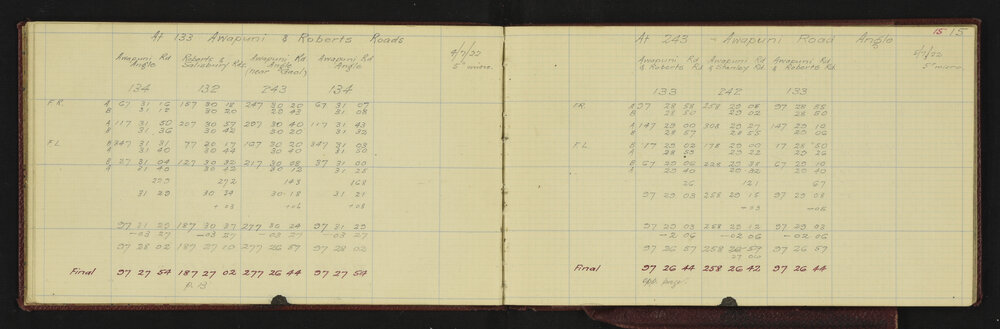 At 133 Awapuni & Roberts Roads
4/7/22
5" micro.
Awapuni Rd Angle
Roberts & Salisbury Rds.
Awapuni Rd Angle (near School)
Awapuni Rd Angle
134 132 243 134
F.R. A 67 31 16 157 30 18 247 30 20 67 31 07
B 31 12 30 20 29 43 31 08
A 117 31 50 207 30 57 297 30 40 117 31 43
B 31 36 30 42 30 20 31 32
F.L. B 347 31 31 77 20 47 167 30 20 347 31 03
A 31 40 30 44 30 40 31 50
B 27 31 04 127 30 32 217 30 08 37 31 00
A 21 45 30 42 30 12 31 25
272 143 168
31 29 30 34 30-18 31 21
+ 03 + 06 + 08
97 31 29 187 30 37 277 30 24 97 31 29
-03 27 -03 27 -03 27 -03 27
97 28 02 187 27 10 277 26 57 97 28 02
Final 97 27 54 187 27 02 277 26 44 97 27 54
p. 13
15 15
At 243 - Awapuni Road Angle
5/7/22
5" micro
Awapuni Rd & Roberts Rd
Awapuni Rd & Stanley Rd.
Awapuni Rd & Roberts Rd.
133 242 133
F.R. A 97 28 58 258 29 08 97 28 55
B 28 50 29 02 28 50
A 147 29 00 308 29 27 147 29 10
B 28 57 28 55 29 06
F.L. B 17 29 02 178 29 00 17 28 50
A 28 59 29 22 29 26
B 67 29 06 228 29 38 67 29 10
A 29 40 29 32 29 40
26 121 67
97 29 03 258 29 15 97 29 08
-03 -05
97 29 03 258 29 12 97 29 03
-2 06 -02 06 -02 06
97 26 57 258 26 57 97 26 57
27 06
Final 97 26 44 258 26 42 97 26 44
opp. page.